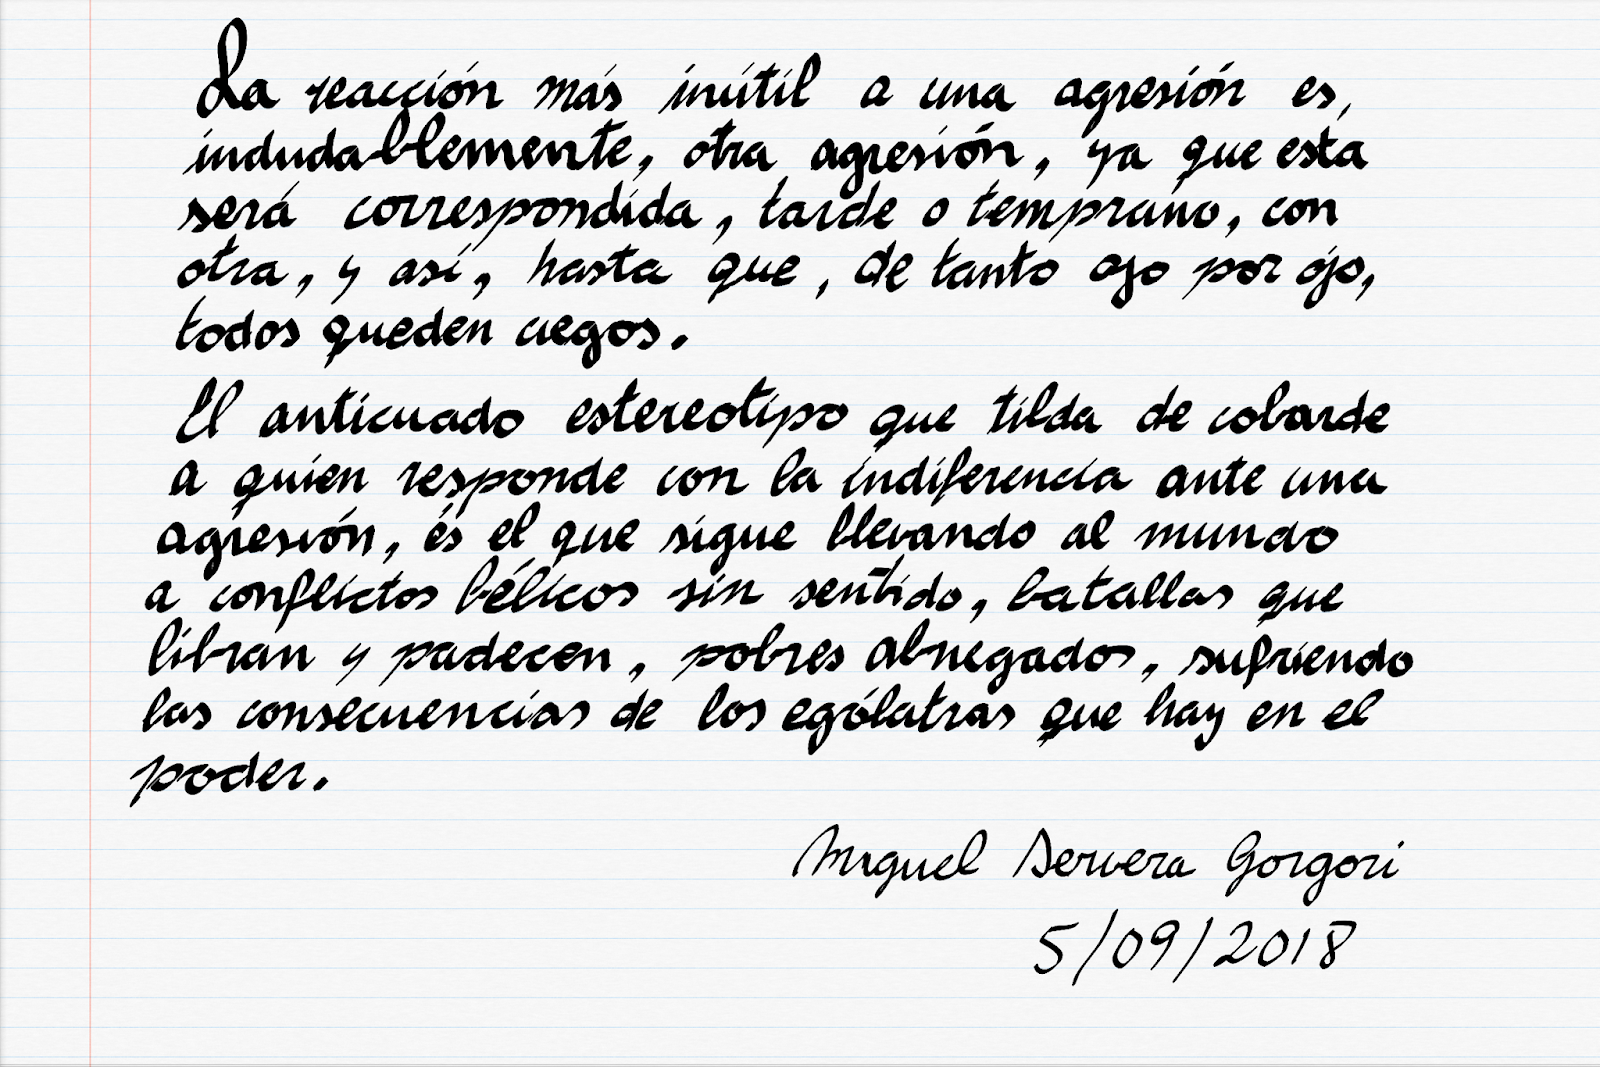 La reacción más inútil a una agresión es,
indudablemente, otra agresión, ya que esta
será correspondida, tarde o temprano, con
otra, y así, hasta que, de tanto ojo por ojo,
todos queden ciegos.
El anticuado estereotipo que tilda de cobarde
a quien responde con la indiferencia ante una
agresión, es el que sigue llevando al mundo
a conflictos bélicos sin sentido, batallas que
libran y padecen, pobres abnegados, sufriendo
las consecuencias de los ególatras que hay en el
poder.
Miguel Servera Gorgori
5/09/2018